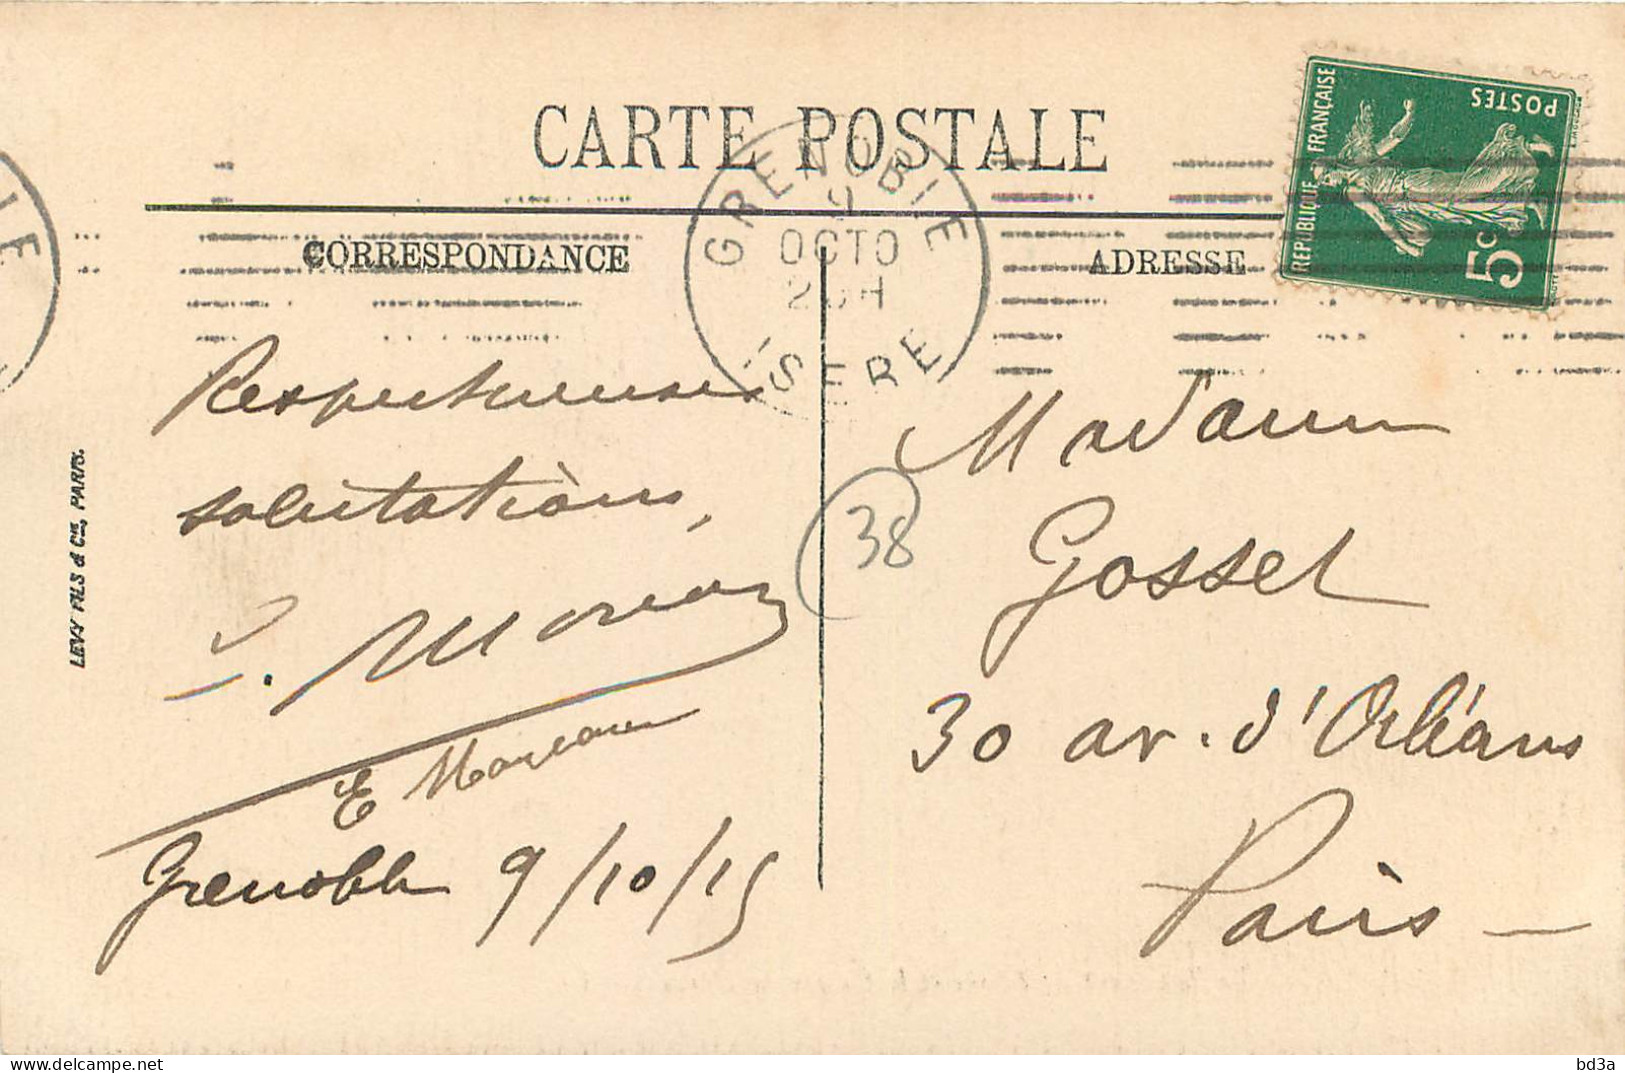 CARTE POSTALE
CORRESPONDANCE
ADRESSE
RÉPUBLIQUE FRANÇAISE
POSTES
5c
GRENOBLE
9
OCTO
ISERE
Respectueuses
salutations,
E
Grenoble 9/10/15
38
Madame
Gosset
30 av. d'Orléans
Paris —
LEVY FILS & Cie, PARIS.
bd3a